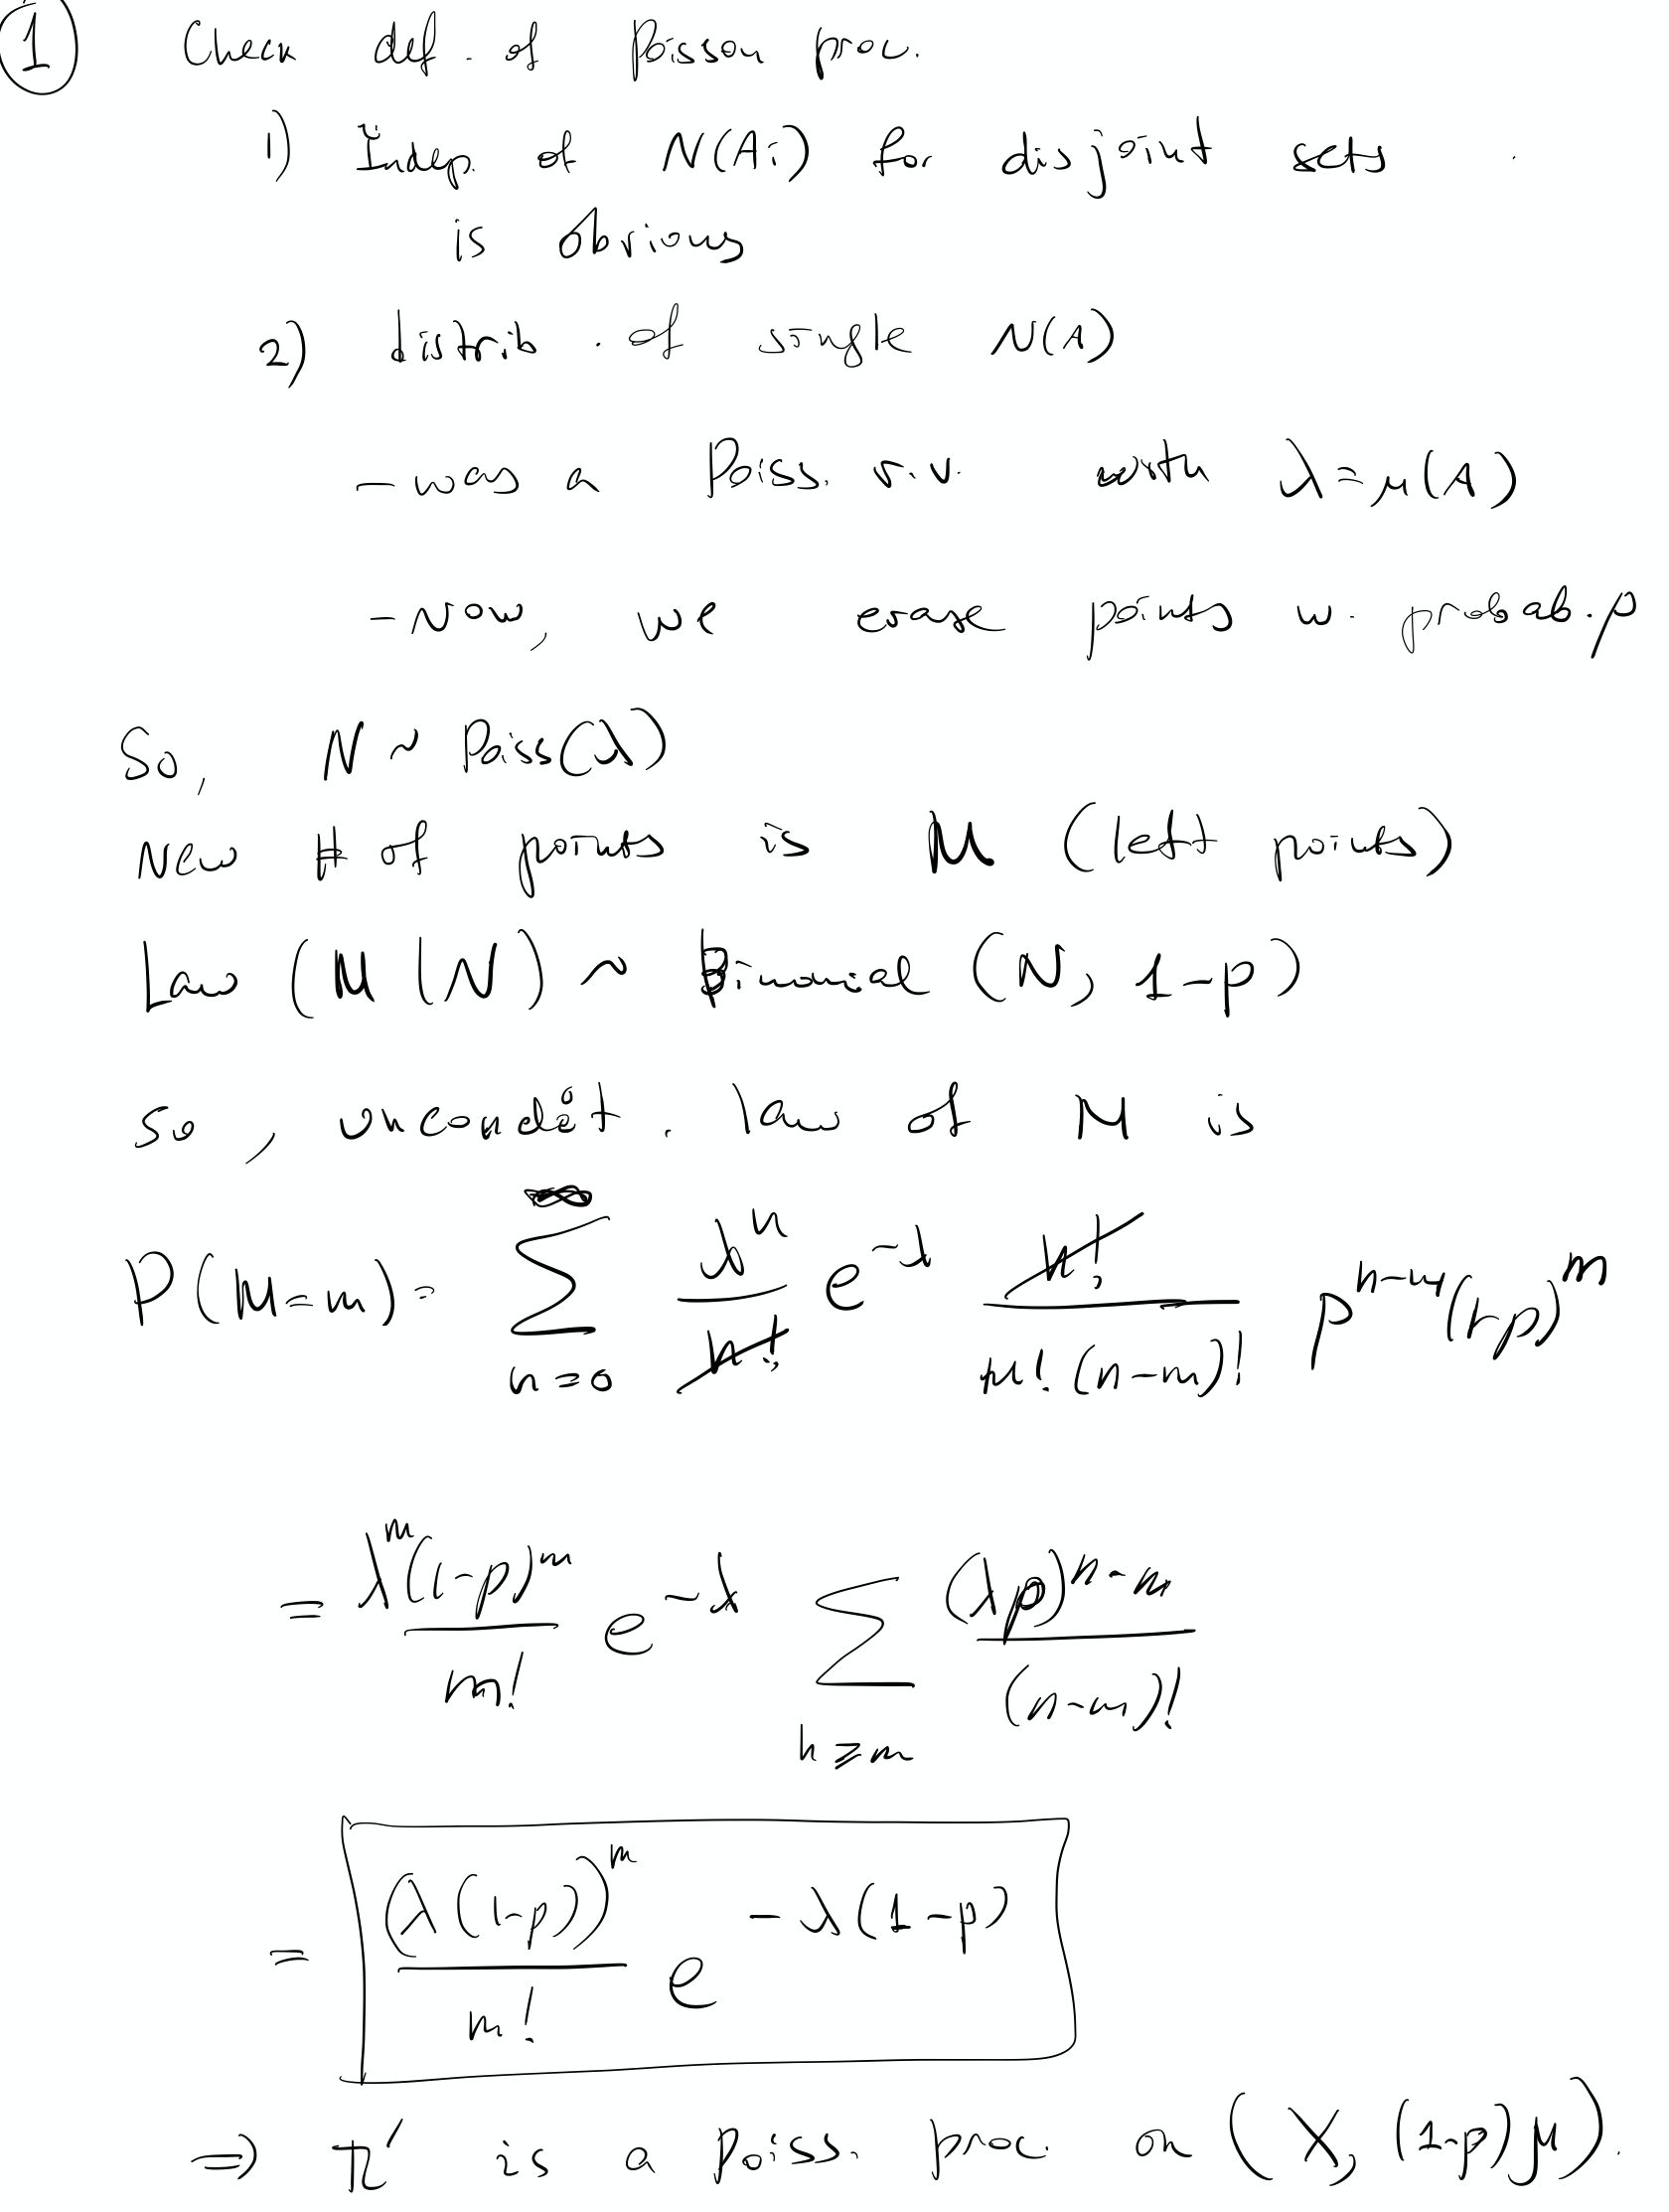 ① Check def. of Poisson proc.
1) Indep. of N(Ai) for disjoint sets
is obvious
2) distrib. of single N(A)
- was a Poiss. r.v. with λ=μ(A)
- Now, we erase points w. probab. p
So, N ~ Poiss(λ)
New # of points is M (left points)
Law (M|N) ~ Binomial (N, 1-p)
so, uncondit. law of M is
P(M=m) = ∑_{n=0}^{∞} λ^n/n! e^{-λ} n!/(m!(n-m)!) p^{n-m}(1-p)^m
= λ^m(1-p)^m/m! e^{-λ} ∑_{n≥m} (λp)^{n-m}/(n-m)!
= (λ(1-p))^m/m! e^{-λ(1-p)}
⇒ π' is a Poiss. proc. on (X, (1-p)μ).